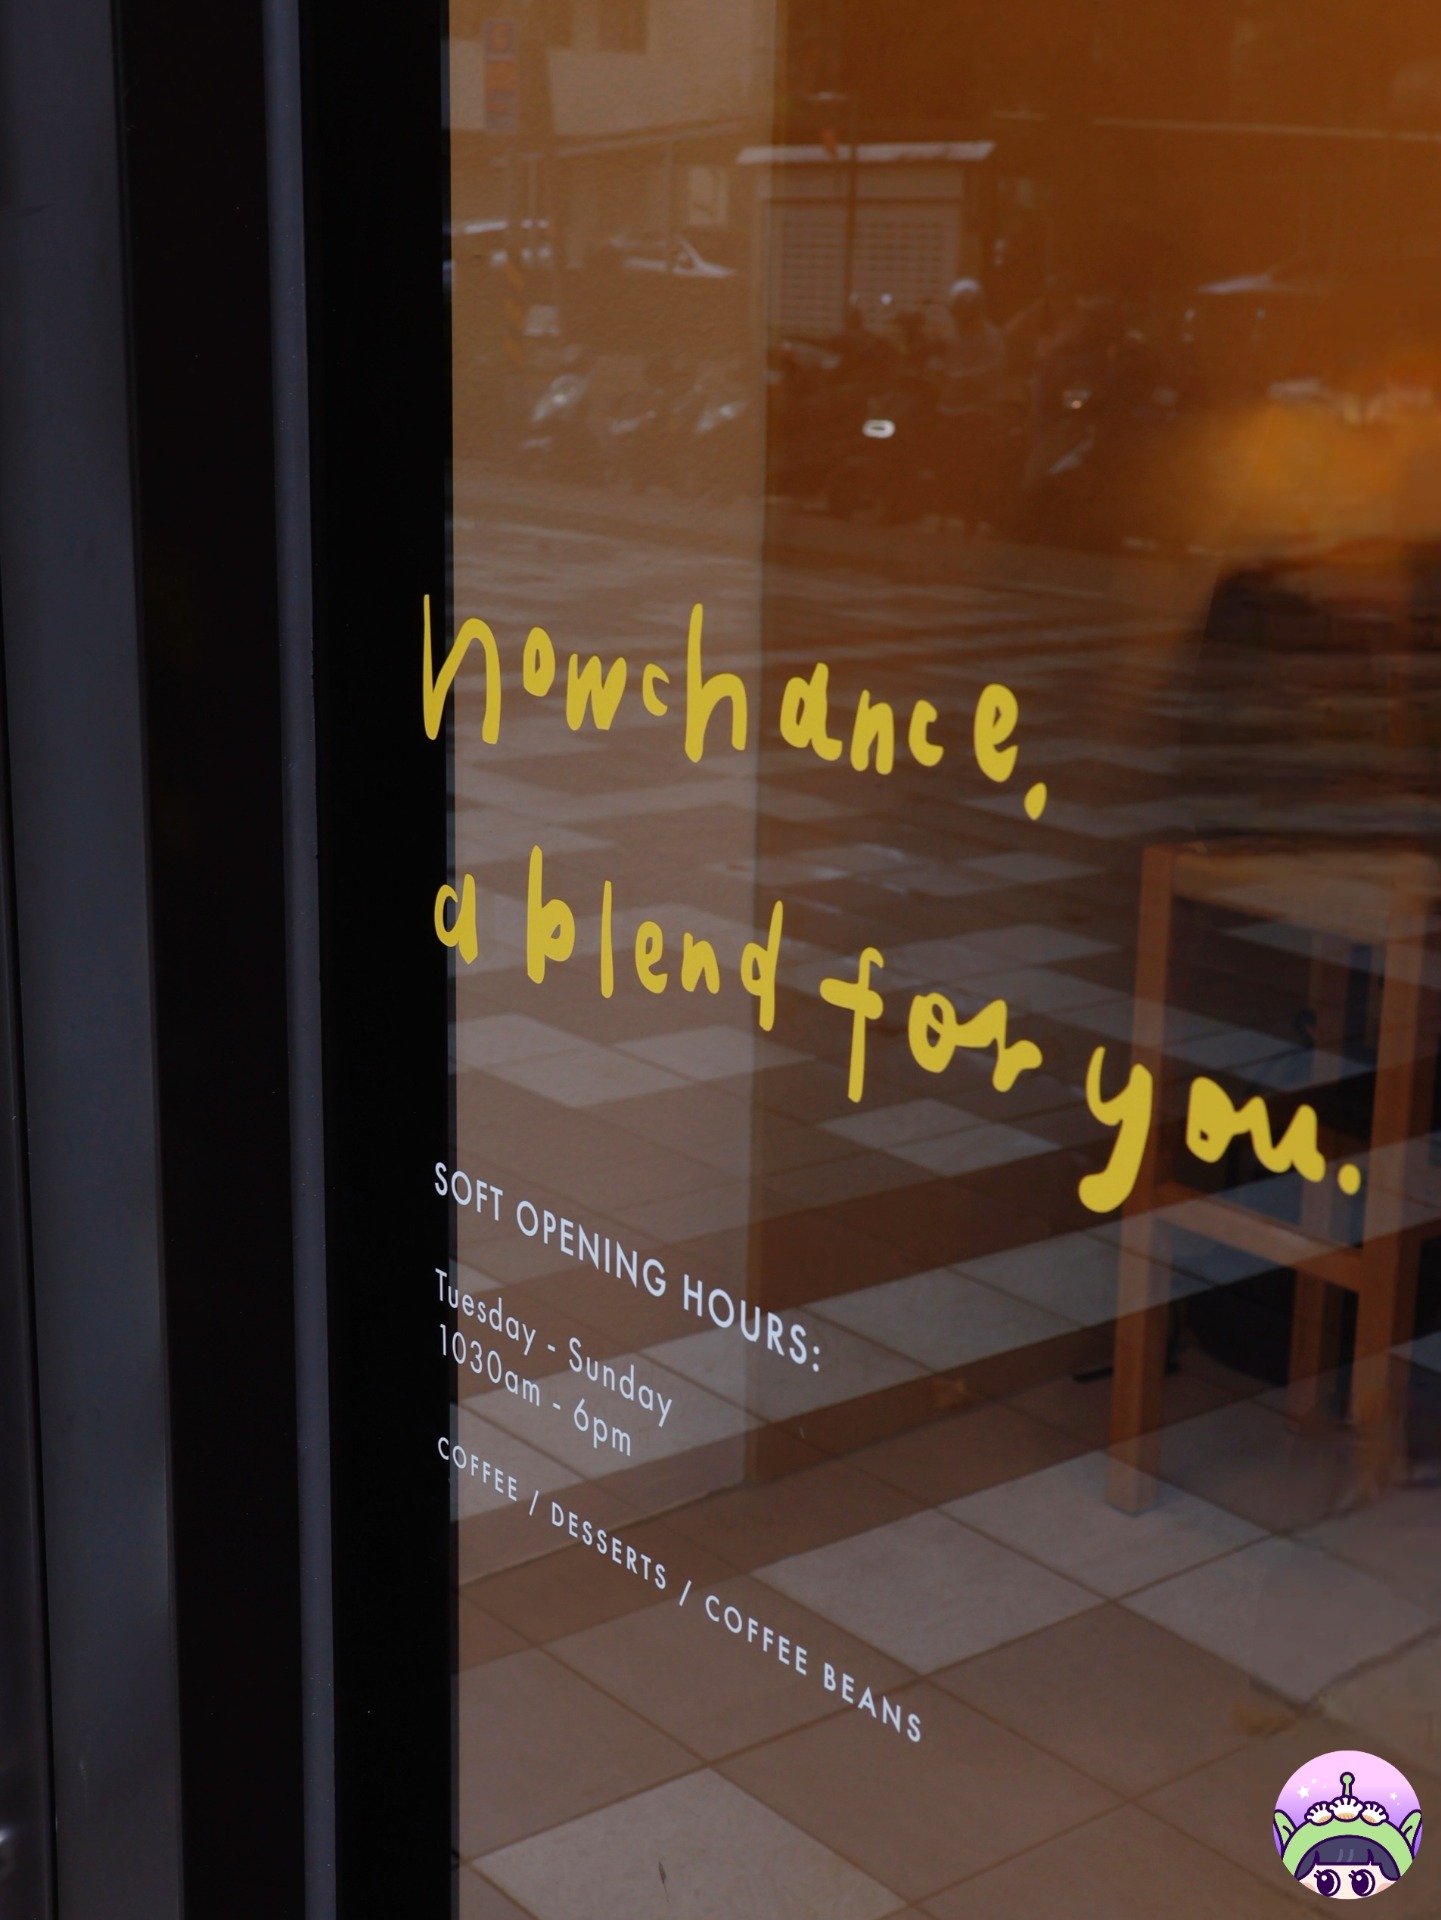 nowchance.
a blend for you.
SOFT OPENING HOURS:
Tuesday - Sunday
1030am - 6pm
COFFEE / DESSERTS / COFFEE BEANS